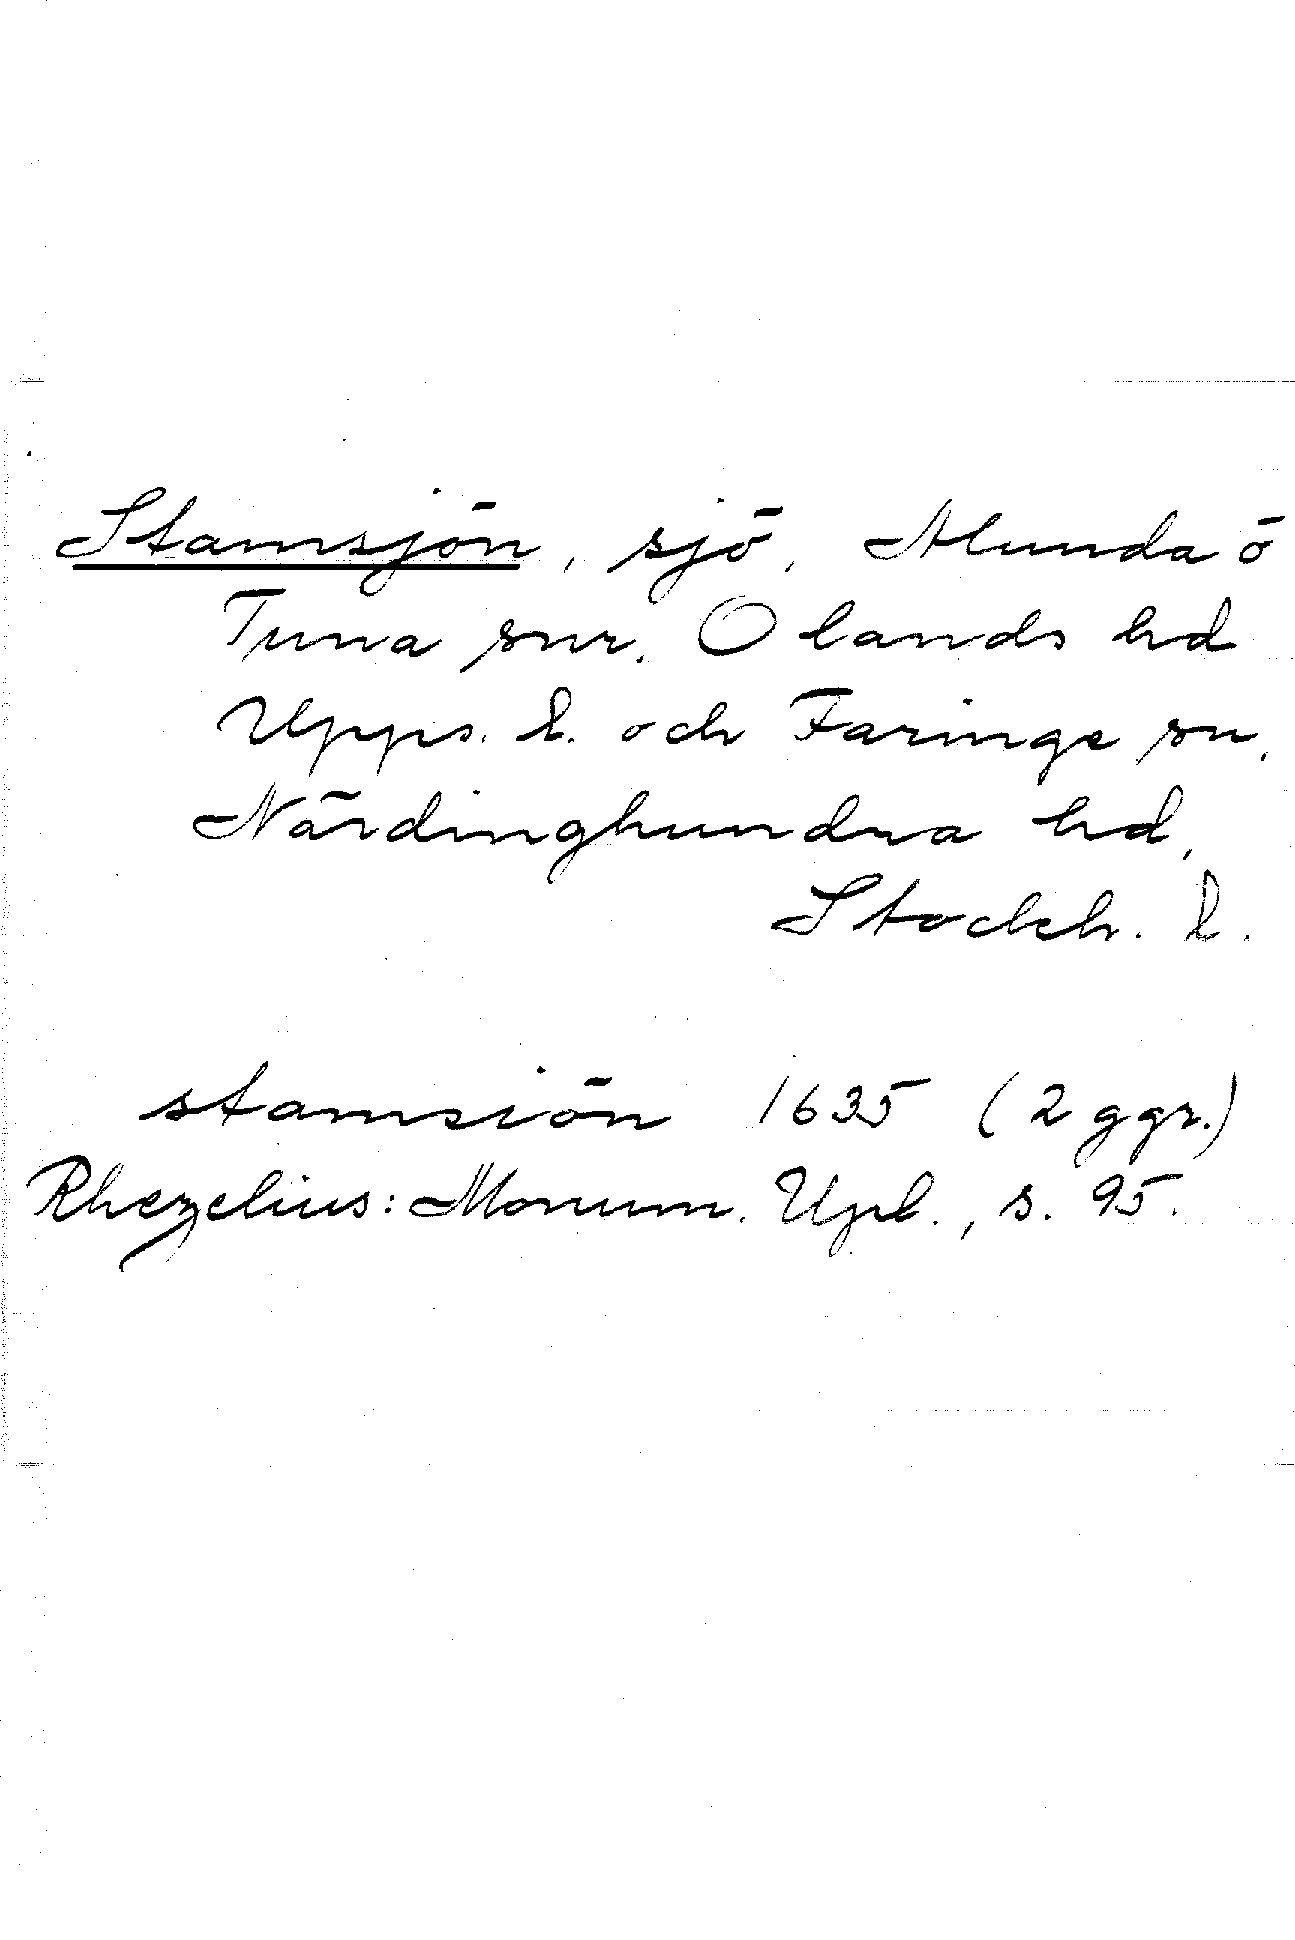 Stamsjön, sjö, Alunda o
Tuna snr. Olands hd
Upps. l. och Faringe sn.
Närdinghundra hd,
Stockh. l.
stamsiön 1635 (2 ggr.)
Rhezelius: Monum. Upl., s. 95.